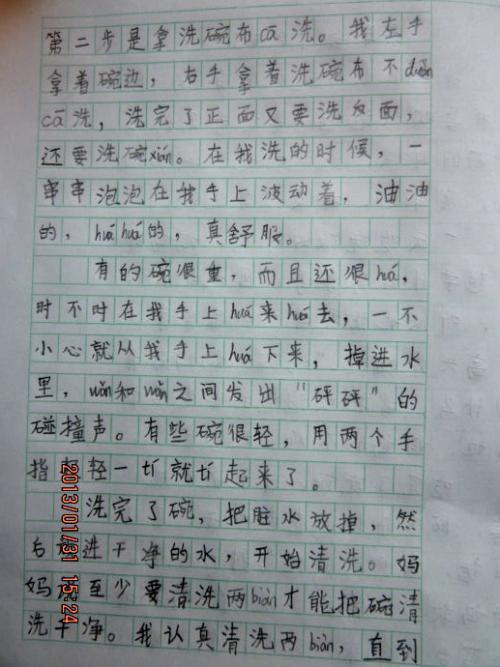 第二步是拿洗碗布cā洗。我左手
拿着碗边，右手拿着洗碗布不duàn
cā洗，洗完了正面又要洗反面，
还要洗碗xián。在我洗的时候，一
串串泡泡在我手上波动着，油油
的，huá huá的，真舒服。
有的碗很重，而且还很huá，
时不时在我手上huá来huá去，一不
小心就从我手上huá下来，掉进水
里，wǎn和wǎn之间发出“砰砰”的
碰撞声。有些碗很轻，用两个手
指轻轻一tí就tí起来了。
洗完了碗，把脏水放掉，然
后放进干净的水，开始清洗。妈
妈说至少要清洗两biàn才能把碗清
洗干净。我认真清洗两biàn，直到
2013/01/31 15:24